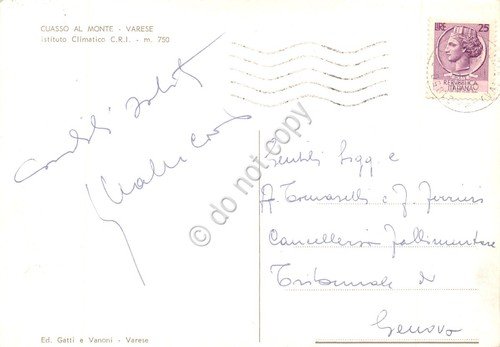 CUASSO AL MONTE - VARESE
Istituto Climatico C.R.I. - m. 750
LIRE 25
REPUBBLICA
ITALIANA
Cordiali saluti
Gentili Sigg. e
A. Tomaselli e J. Ferrusi
Cancelleria Fallimentare
Tribunale di
Genova
© do not copy
Ed. Gatti e Vanoni - Varese